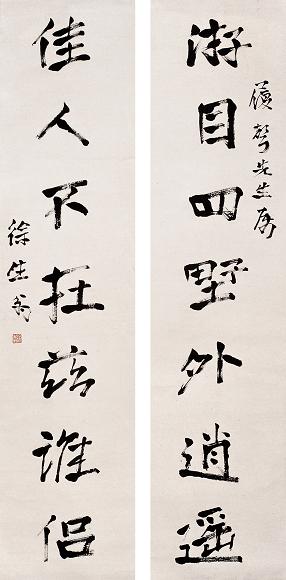 先生属
游目四墅外逍遥
佳人不在兹谁侣
徐生翁